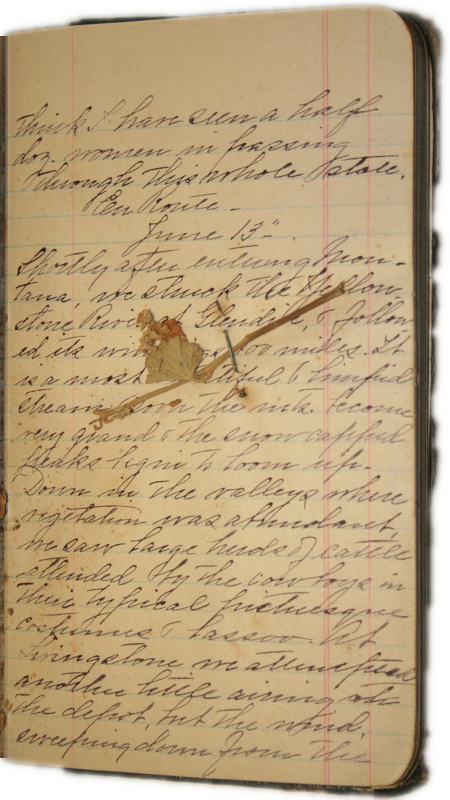 think I have seen a half
doz. women in passing
through this whole state.
En Route -
June 13"
Shortly after entering Mon-
tana, we struck the Yellow-
stone River at Glendive, & follow
ed its 00 miles. It
is a most & limpid
stream, soon the mts. become
very grand & the snow capped
peaks begin to loom up.
Down in the valleys where
vegetation was abundant,
we saw large herds of cattle
attended by the cow boys in
their typical picturesque
costumes & lassoo. At
Livingstone we attempted
another little airing at
the depot, but the wind,
sweeping down from the